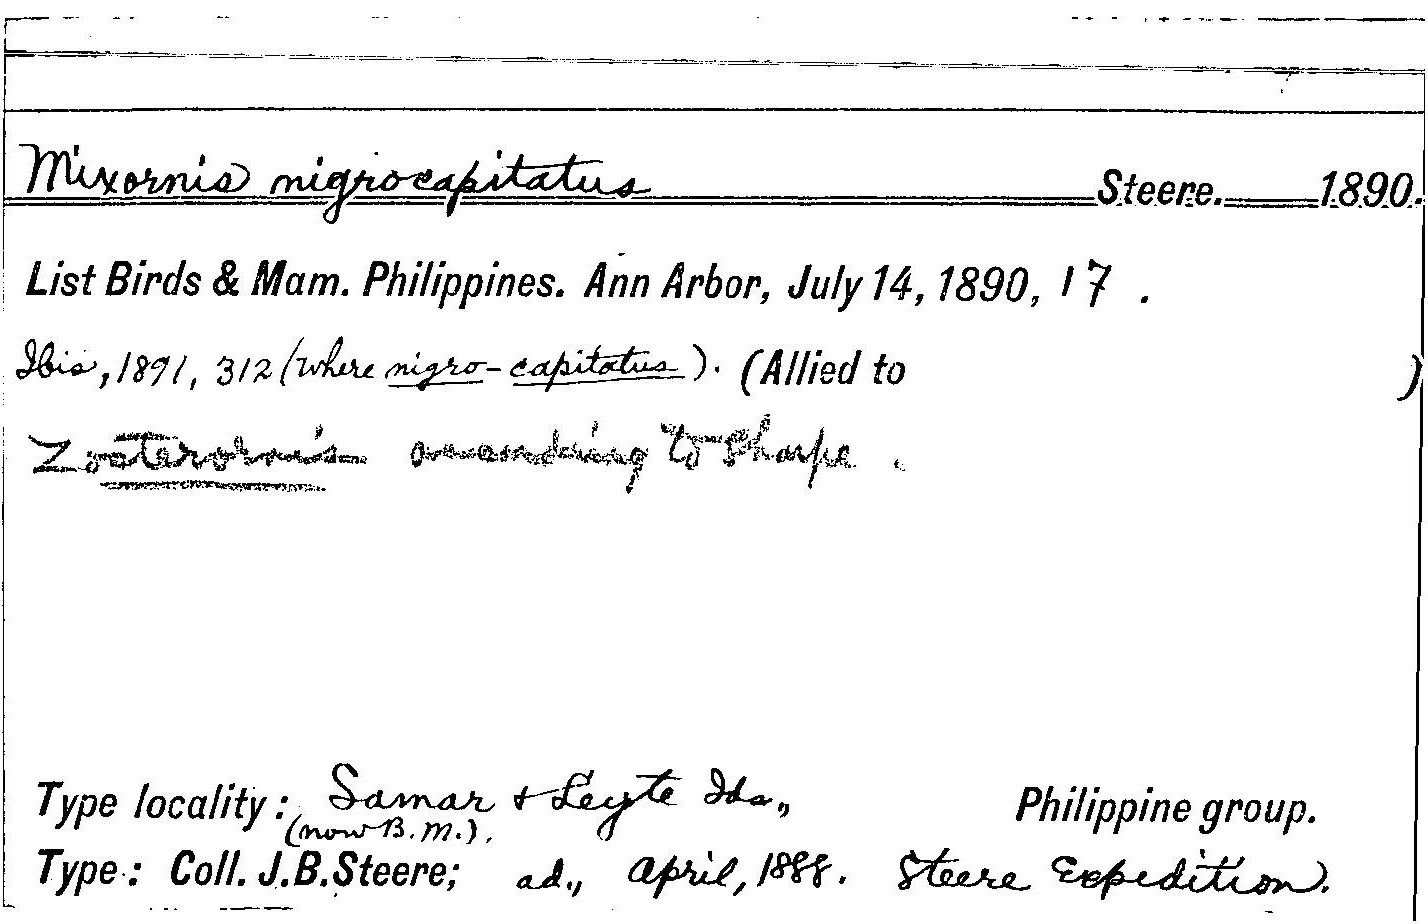 Mixornis nigrocapitatus Steere. 1890.
List Birds & Mam. Philippines. Ann Arbor, July 14, 1890, 17 .
Ibis, 1891, 312 (where nigro-capitatus). (Allied to )
Zosterornis according to Sharpe .
Type locality: Samar & Leyte Ids., Philippine group.
(now B.M.).
Type: Coll. J.B.Steere; ad., April, 1888. Steere Expedition.